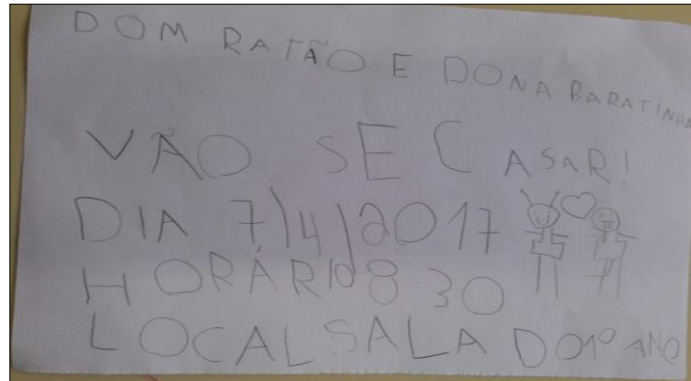 DOM RATÃO E DONA BARATINHA
VÃO SE CASAR!
DIA 7/4/2017
HORÁRIO 8 30
LOCAL SALA DO 1º ANO